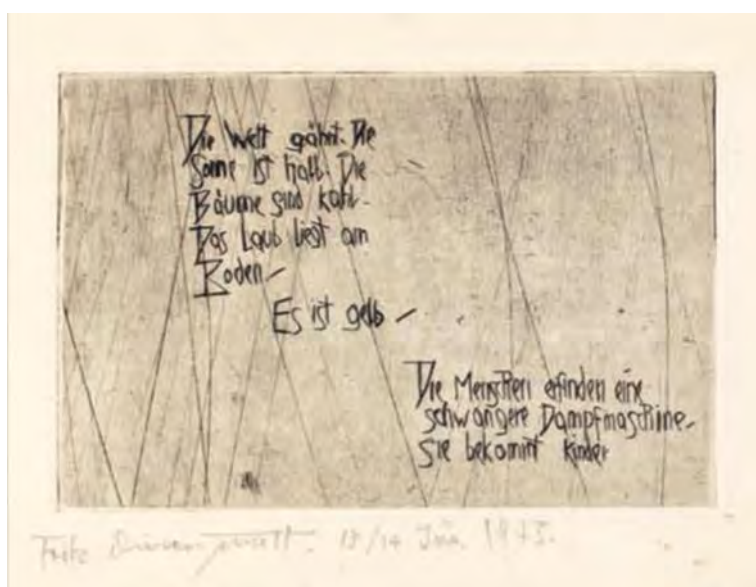 Die Welt gähnt. Die
Sonne ist Die
Bäume sind kahl-
Das Laub liegt am
Boden -
Es ist gelb -
Die Menschen erfinden eine
schwangere Dampfmaschine.
Sie bekommt Kinder
Fritz Dürrenmatt.